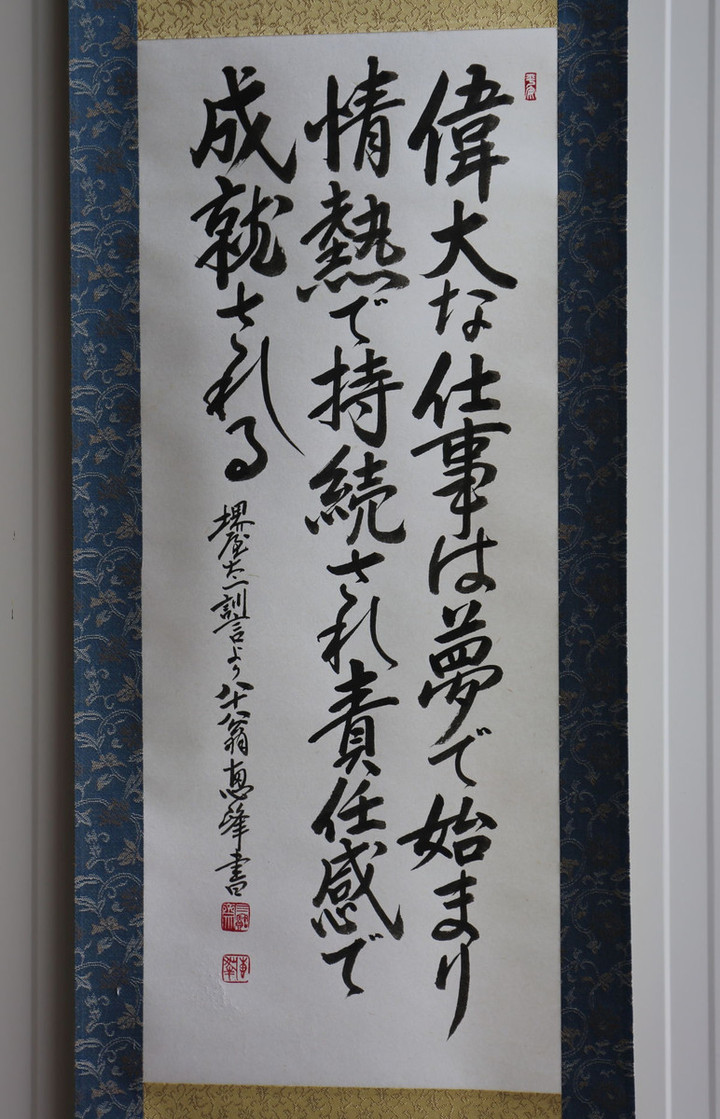 偉大な仕事は夢で始まり
情熱で持続され責任感で
成就される
堺屋太一訓言より八十八翁恵峰書